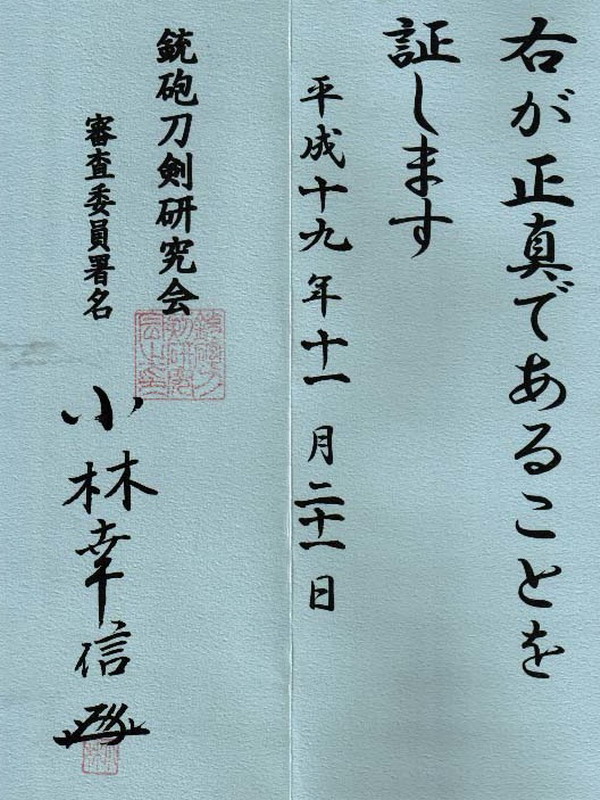 右が正真であることを
証します
平成十九年十一月二十一日
銃砲刀剣研究会
審査委員署名
小林幸信